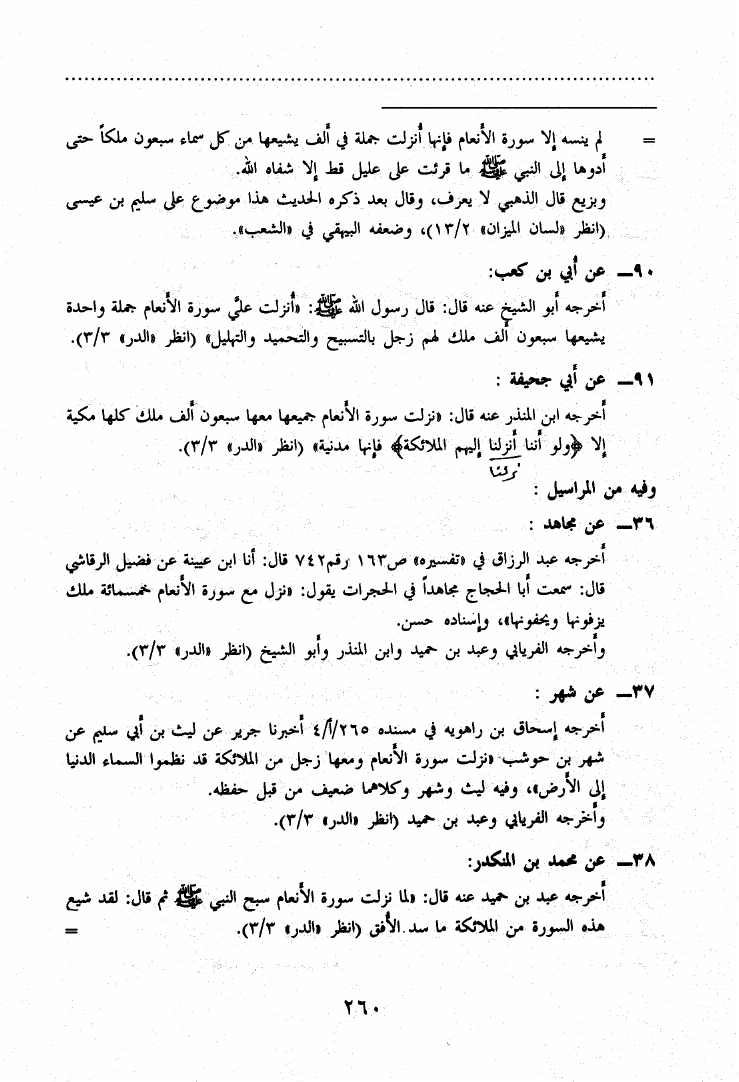 = لم ينسه إلا سورة الأنعام فإنها أُنزلت جملة في ألف يشيعها من كل سماء سبعون ملكاً حتى
أدوها إلى النبي ﷺ ما قرئت على عليل قط إلا شفاه الله.
وبزيع قال الذهبي لا يعرف، وقال بعد ذكره الحديث هذا موضوع على سليم بن عيسى
(انظر «لسان الميزان» ١٣/٢)، وضعفه البيهقي في «الشعب».
٩٠ـ عن أبي بن كعب:
أخرجه أبو الشيخ عنه قال: قال رسول الله ﷺ: «أُنزلت عليَّ سورة الأنعام جملة واحدة
يشيعها سبعون ألف ملك لهم زجل بالتسبيح والتحميد والتهليل» (انظر «الدر» ٣/٣).
٩١ـ عن أبي جحيفة :
أخرجه ابن المنذر عنه قال: «نزلت سورة الأنعام جميعها معها سبعون ألف ملك كلها مكية
إلا ﴿ولو أننا أنزلنا إليهم الملائكة﴾ فإنها مدنية» (انظر «الدر» ٣/٣).
نزلنا
وفيه من المراسيل :
٣٦ـ عن مجاهد :
أخرجه عبد الرزاق في «تفسيره» ص١٦٣ رقم٧٤٢ قال: أنا ابن عيينة عن فضيل الرقاشي
قال: سمعت أبا الحجاج مجاهداً في الحجرات يقول: «نزل مع سورة الأنعام خمسمائة ملك
يزفونها ويحفونها»، وإسناده حسن.
وأخرجه الفريابي وعبد بن حميد وابن المنذر وأبو الشيخ (انظر «الدر» ٣/٣).
٣٧ـ عن شهر :
أخرجه إسحاق بن راهويه في مسنده ٤/أ/٢٦٥ أخبرنا جرير عن ليث بن أبي سليم عن
شهر بن حوشب «نزلت سورة الأنعام ومعها زجل من الملائكة قد نظموا السماء الدنيا
إلى الأرض»، وفيه ليث وشهر وكلاهما ضعيف من قبل حفظه.
وأخرجه الفريابي وعبد بن حميد (انظر «الدر» ٣/٣).
٣٨ـ عن محمد بن المنكدر:
أخرجه عبد بن حميد عنه قال: «لما نزلت سورة الأنعام سبح النبي ﷺ ثم قال: لقد شيع
هذه السورة من الملائكة ما سد الأُفق (انظر «الدر» ٣/٣). =
٢٦٠